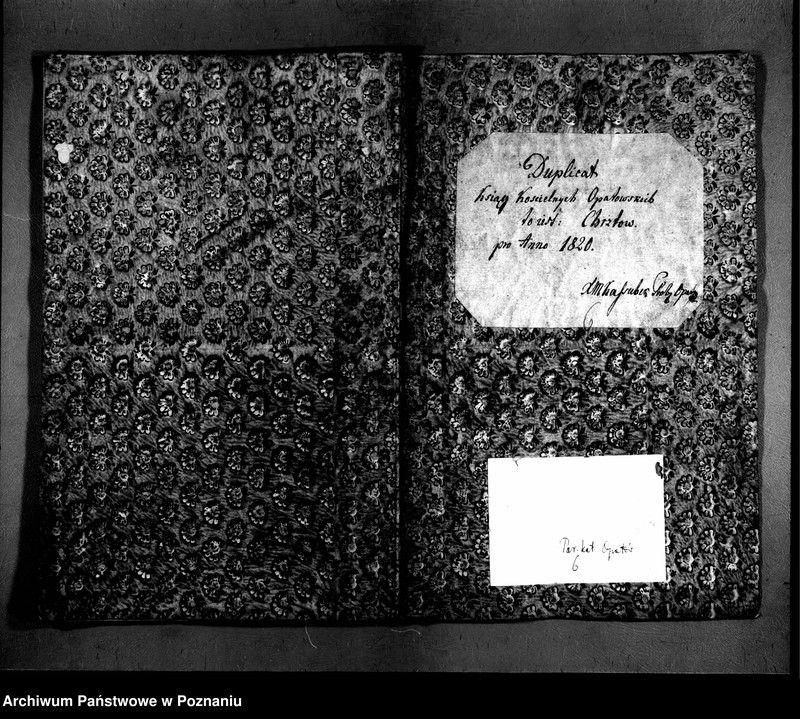 Duplicat
Ksiąg Kościelnych Opatowskich
to iest: Chrztow.
pro Anno 1820.
6
Par. kat Opatów
6
Archiwum Państwowe w Poznaniu